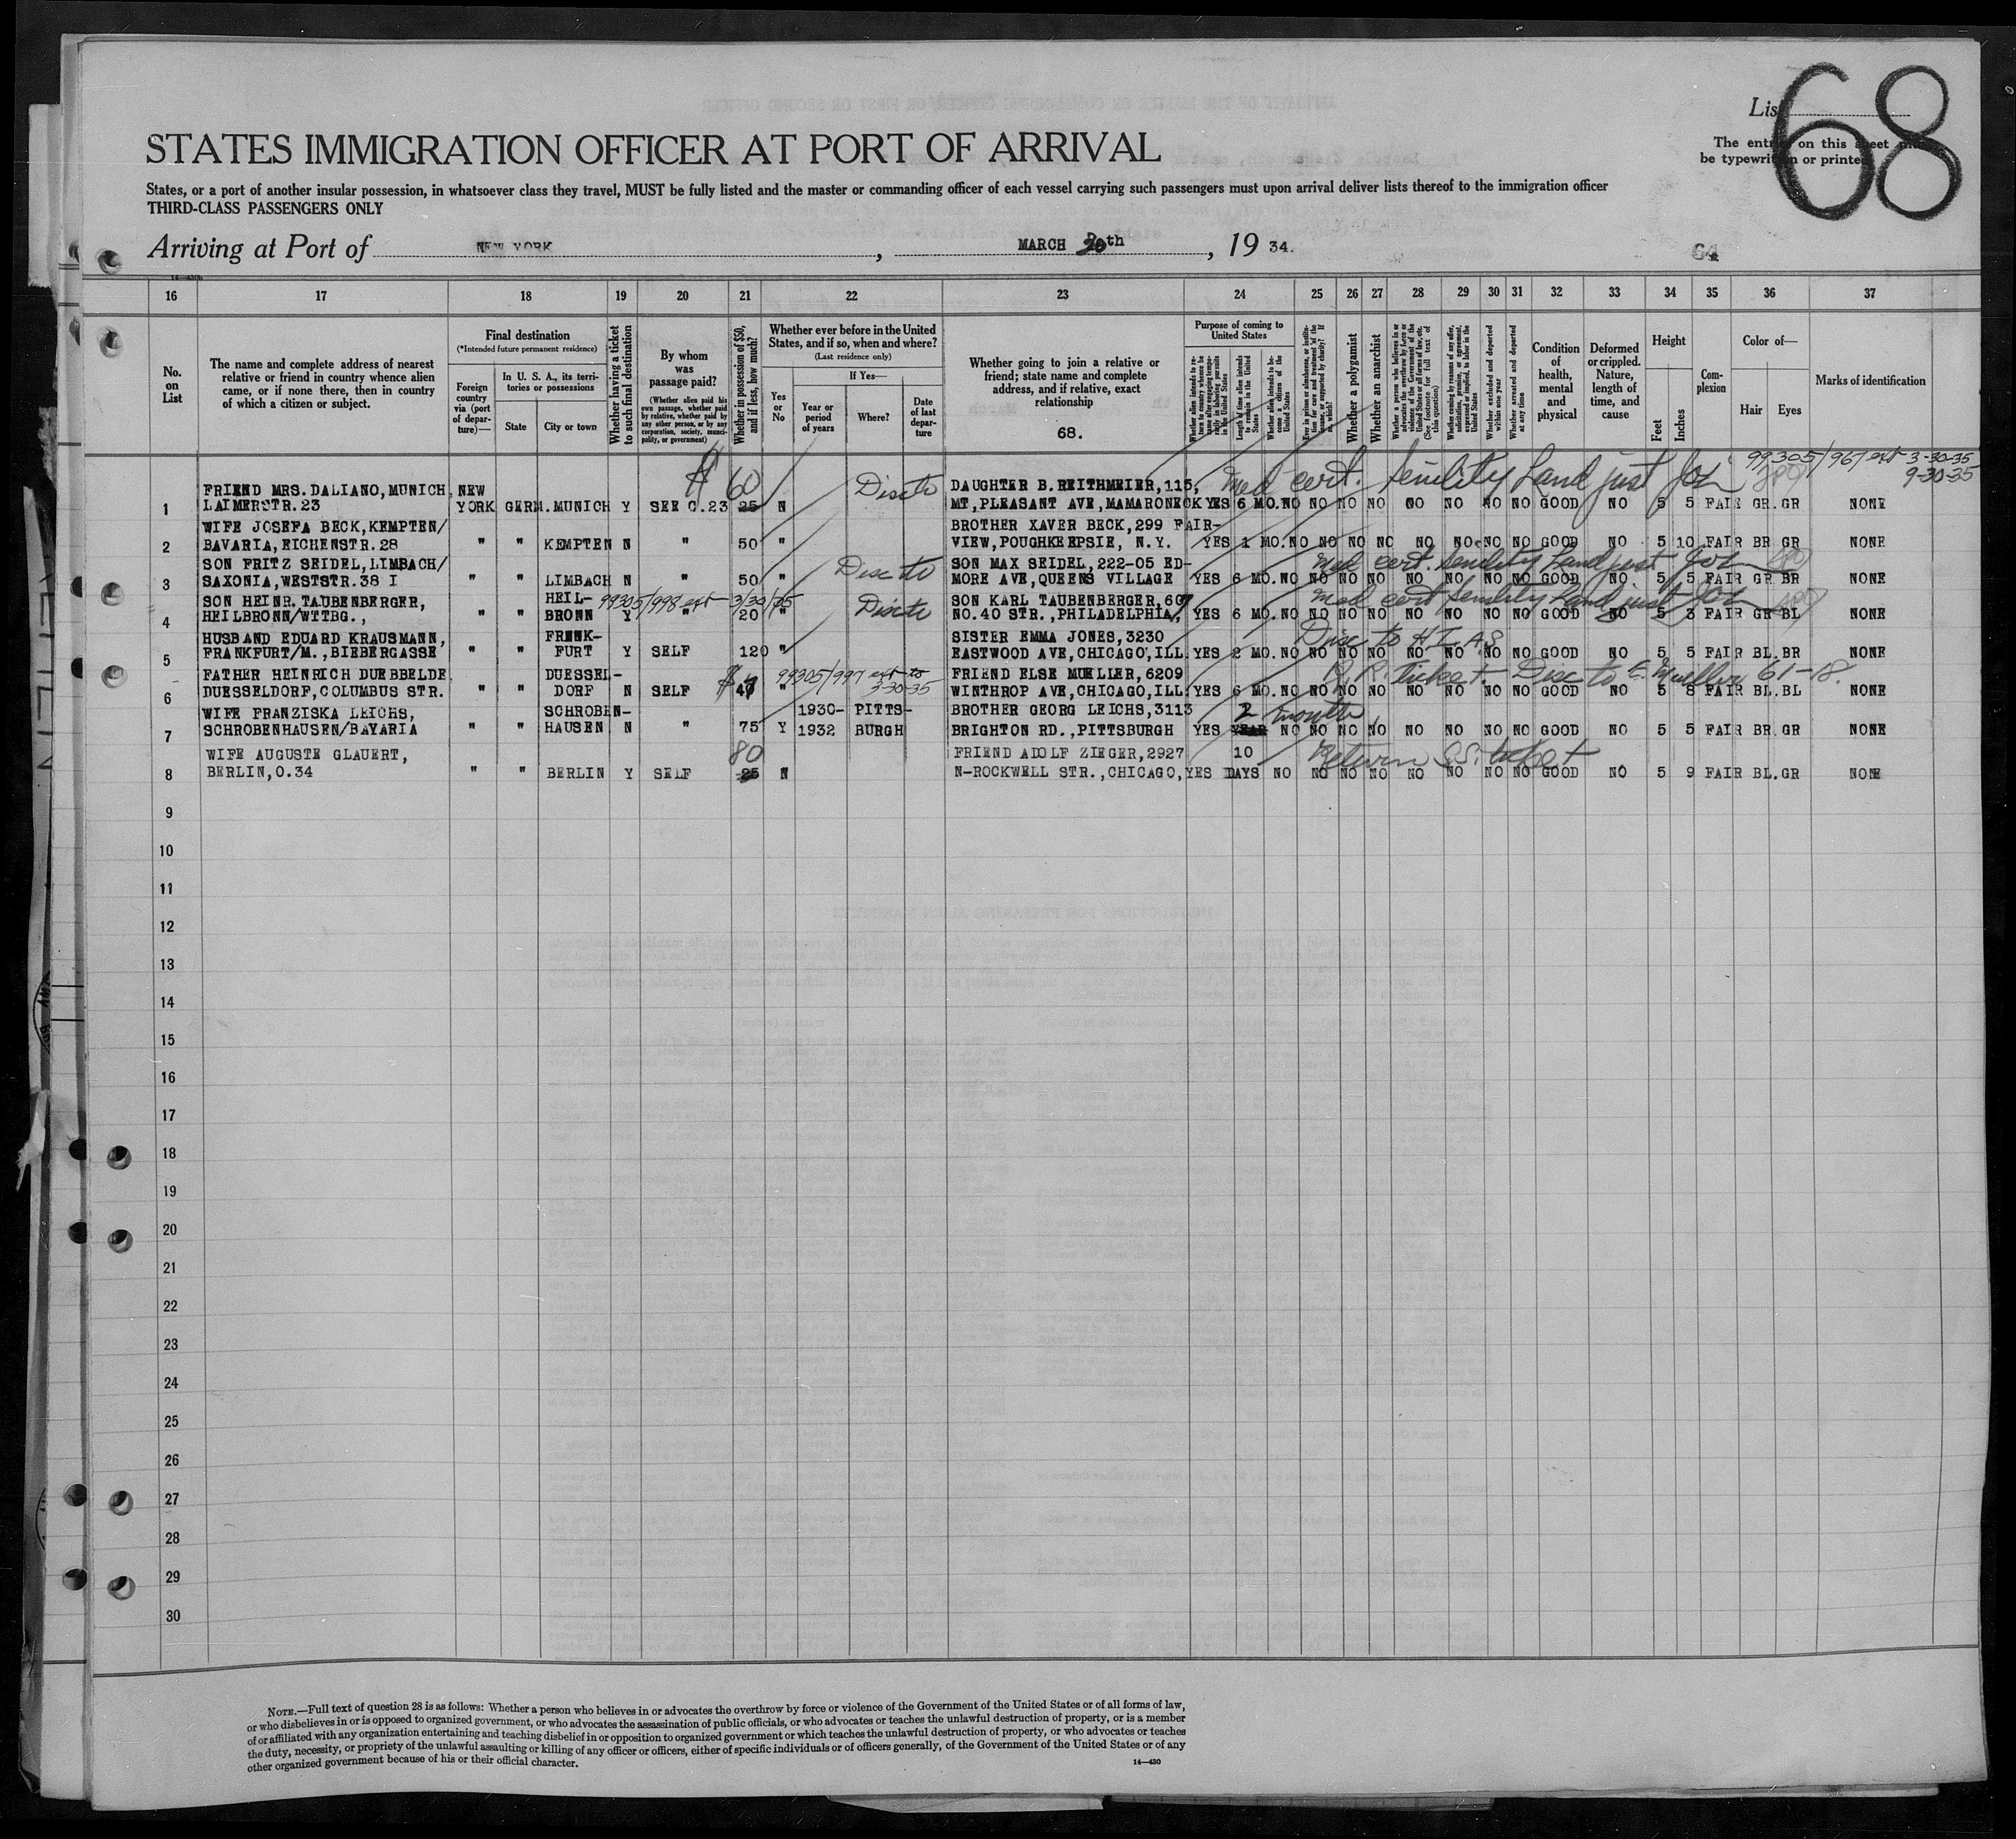 List
68
The entries on this sheet must
be typewritten or printed
STATES IMMIGRATION OFFICER AT PORT OF ARRIVAL
States, or a port of another insular possession, in whatsoever class they travel, MUST be fully listed and the master or commanding officer of each vessel carrying such passengers must upon arrival deliver lists thereof to the immigration officer
THIRD-CLASS PASSENGERS ONLY
Arriving at Port of NEW YORK, MARCH 20th, 19 34.
16 17 18 19 20 21 22 23 24 25 26 27 28 29 30 31 32 33 34 35 36 37
No. on List
The name and complete address of nearest
relative or friend in country whence alien
came, or if none there, then in country
of which a citizen or subject.
Final destination
(*Intended future permanent residence)
Foreign country via (port of departure)—
In U. S. A., its territories or possessions
State
City or town
Whether having a ticket to such final destination
By whom was passage paid?
(Whether alien paid his own passage, whether paid by relative, whether paid by any other person, or by any corporation, society, municipality, or government)
Whether in possession of $50, and if less, how much?
Whether ever before in the United States, and if so, when and where?
(Last residence only)
Yes or No
If Yes—
Year or period of years
Where?
Date of last departure
Whether going to join a relative or
friend; state name and complete
address, and if relative, exact
relationship
68.
Purpose of coming to United States
Whether alien intends to return to country whence he came after engaging temporarily in laboring pursuits in the United States
Length of time alien intends to remain in the United States
Whether alien intends to become a citizen of the United States
Ever in prison or almshouse or institution for care and treatment of the insane, or supported by charity? If so, which?
Whether a polygamist
Whether an anarchist
Whether a person who believes in or advocates the overthrow by force or violence of the Government of the United States or all forms of law, etc. (See footnote for full text of this question)
Whether coming by reasons of any offer, solicitation, promise, or agreement, expressed or implied, to labor in the United States
Whether excluded and deported within one year
Whether arrested and deported at any time
Condition of health, mental and physical
Deformed or crippled. Nature, length of time, and cause
Height
Feet
Inches
Complexion
Color of—
Hair
Eyes
Marks of identification
$ 60 Disc to Med cert. Senility Land just 99305/967 ext 3-30-35
9-30-35
FRIEND MRS. DALIANO, MUNICH, NEW DAUGHTER B. REITHMEIER, 115,
1 LAIMERSTR. 23 YORK GERM. MUNICH Y SEE C. 23 25 N MT, PLEASANT AVE, MAMARONECK YES 6 MO. NO NO NO NO NO NO NO NO GOOD NO 5 5 FAIR GR. GR NONE
WIFE JOSEFA BECK, KEMPTEN/ BROTHER XAVER BECK, 299 FAIR-
2 BAVARIA, EICHENSTR. 28 " " KEMPTEN N " 50 " VIEW, POUGHKEEPSIE, N. Y. YES 1 MO. NO NO NO NO NO NO NO NO GOOD NO 5 10 FAIR BR GR NONE
SON FRITZ SEIDEL, LIMBACH/ Disc to SON MAX SEIDEL, 222-05 ED- Med cert. Senility Land just
3 SAXONIA, WESTSTR. 38 I " " LIMBACH N " 50 " MORE AVE, QUEENS VILLAGE YES 6 MO. NO NO NO NO NO NO NO NO GOOD NO 5 5 FAIR GR BR NONE
SON HEINR. TAUBENBERGER, HEIL- 99305/998 ext 3/30/35 Disc to SON KARL TAUBENBERGER, 607 Med cert Senility Land just
4 HEILBRONN/WTTBG., " " BRONN Y " 20 " NO. 40 STR., PHILADELPHIA, YES 6 MO. NO NO NO NO NO NO NO NO GOOD NO 5 3 FAIR GR BL NONE
HUSBAND EDUARD KRAUSMANN, FRANK- SISTER EMMA JONES, 3230 Disc to H.I.A.S
5 FRANKFURT/M., BIEBERGASSE " " FURT Y SELF 120 " EASTWOOD AVE, CHICAGO, ILL. YES 2 MO. NO NO NO NO NO NO NO NO GOOD NO 5 5 FAIR BL. BR NONE
FATHER HEINRICH DUEBBELDE DUESSEL- 99305/997 ext to 3-30-35 FRIEND ELSE MUELLER, 6209 R.R. Ticket. Disc to E. Mueller 61-18.
6 DUESSELDORF, COLUMBUS STR. " " DORF N SELF " WINTHROP AVE, CHICAGO, ILL. YES 6 MO. NO NO NO NO NO NO NO NO GOOD NO 5 8 FAIR BL. BL NONE
WIFE FRANZISKA LEICHS, SCHROBEN- 1930- PITTS- BROTHER GEORG LEICHS, 3113 2 months
7 SCHROBENHAUSEN/BAYARIA " " HAUSEN N " 75 Y 1932 BURGH BRIGHTON RD., PITTSBURGH YES YEAR NO NO NO NO NO NO NO NO GOOD NO 5 5 FAIR BR. GR NONE
WIFE AUGUSTE GLAUERT, 80 FRIEND ADOLF ZIEGER, 2927 10 Return S.S. ticket
8 BERLIN, O. 34 " " BERLIN Y SELF 25 N N-ROCKWELL STR., CHICAGO, YES DAYS NO NO NO NO NO NO NO NO GOOD NO 5 9 FAIR BL. GR NONE
9
10
11
12
13
14
15
16
17
18
19
20
21
22
23
24
25
26
27
28
29
30
NOTE.—Full text of question 28 is as follows: Whether a person who believes in or advocates the overthrow by force or violence of the Government of the United States or of all forms of law,
or who disbelieves in or is opposed to organized government, or who advocates the assassination of public officials, or who advocates or teaches the unlawful destruction of property, or is a member
of or affiliated with any organization entertaining and teaching disbelief in or opposition to organized government or which teaches the unlawful destruction of property, or who advocates or teaches
the duty, necessity, or propriety of the unlawful assaulting or killing of any officer or officers, either of specific individuals or of officers generally, of the Government of the United States or of any
other organized government because of his or their official character.
14—430